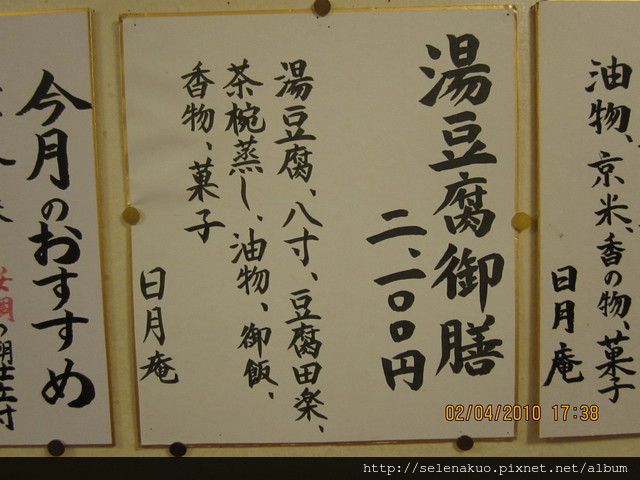 油物、京米、香の物、菓子
日月庵
湯豆腐御膳
二、一〇〇円
湯豆腐、八寸、豆腐田楽、
茶椀蒸し、油物、御飯、
香物、菓子
日月庵
今月のおすすめ
02/04/2010 17:38
http://selenakuo.pixnet.net/album